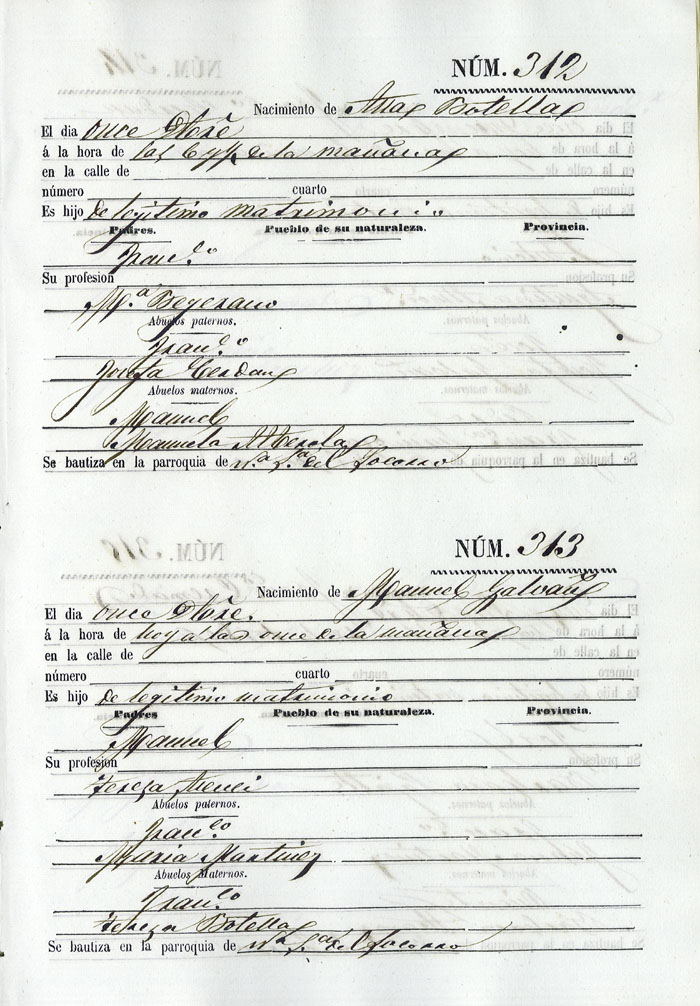 NÚM. 312
Nacimiento de Ana Botella
El dia once Dbre
á la hora de las 6 y ½ de la mañana
en la calle de
número cuarto
Es hijo de legitimo matrimonio
Padres. Pueblo de su naturaleza. Provincia.
Fran.co
Su profesion
M.a
Abuelos paternos.
Fran.co
Josefa Cerdan
Abuelos maternos.
Manuel
Manuela Alberola
Se bautiza en la parroquia de N.a S.a del Socorro
NÚM. 313
Nacimiento de Manuel Galvañ
El dia once Dbre.
á la hora de hoy á las once de la mañana
en la calle de
número cuarto
Es hijo de legitimo matrimonio
Padres Pueblo de su naturaleza. Provincia.
Manuel
Su profesion
Tereza
Abuelos paternos.
Fran.co
Maria Martinez
Abuelos Maternos.
Fran.co
Tereza Botella
Se bautiza en la parroquia de Na. Sa. del Socorro